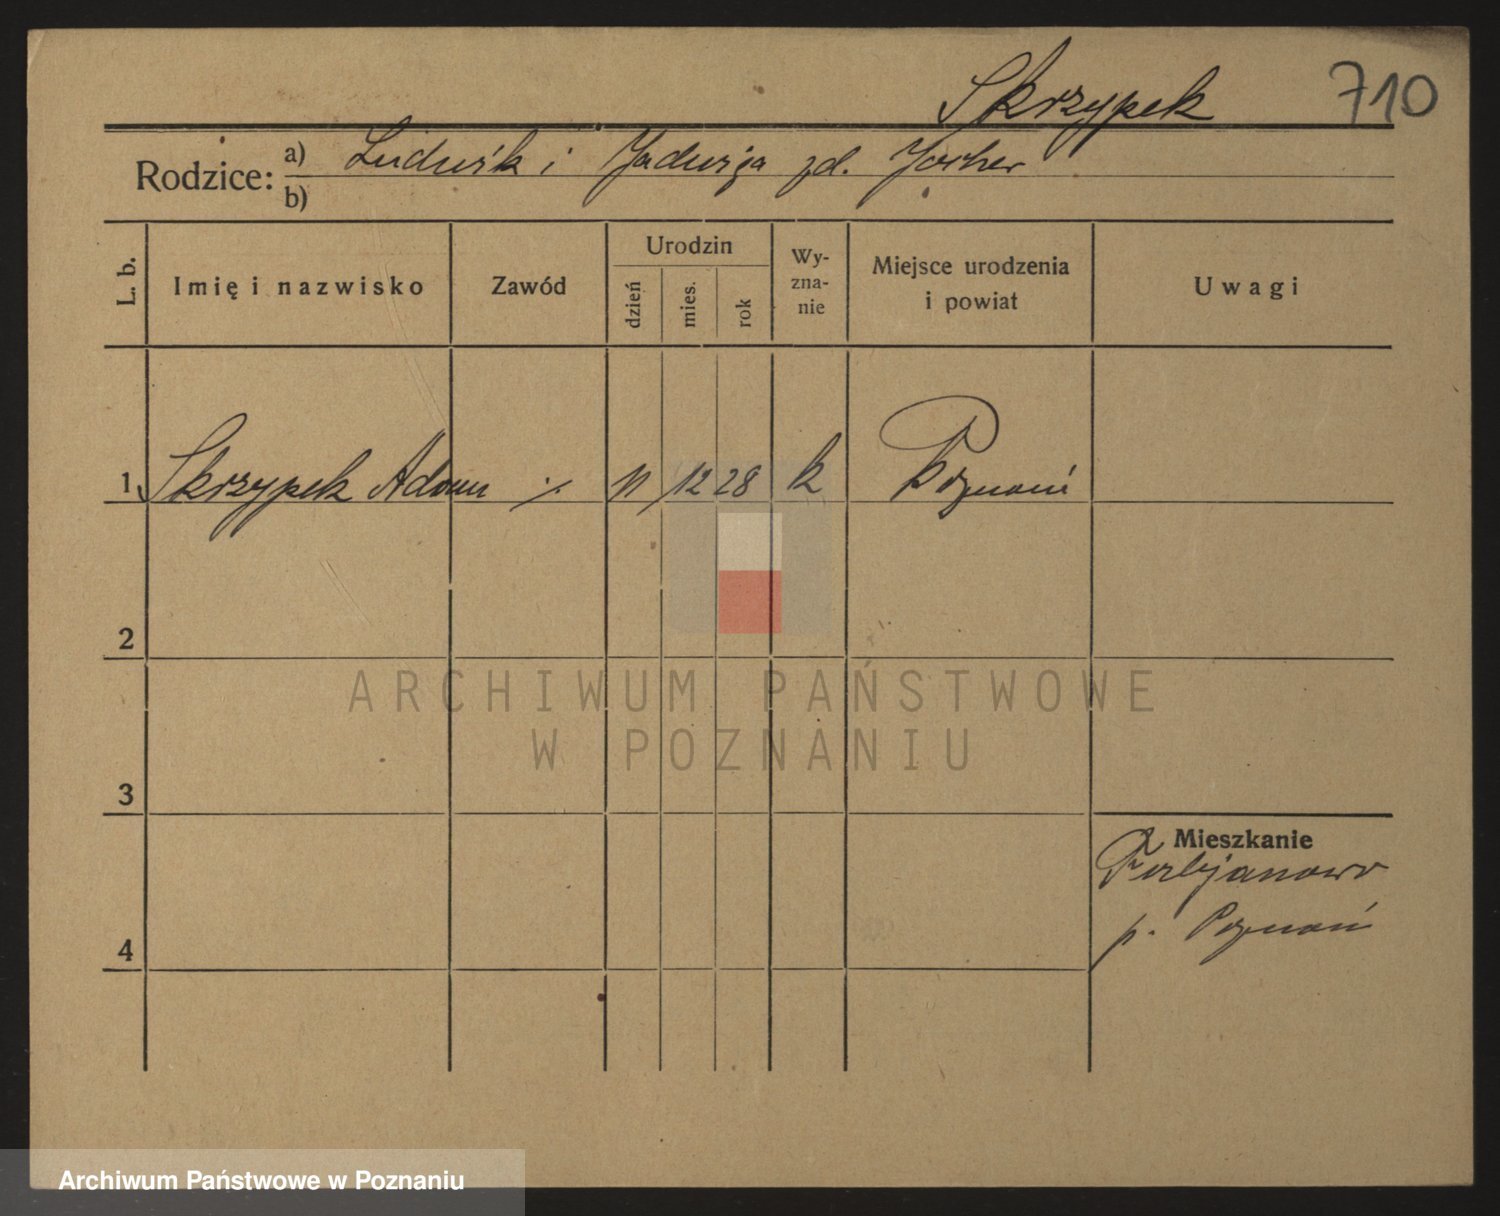 Skrzypek 710
Rodzice: a) Ludwik i Jadwiga zd.
b)
L. b. Imię i nazwisko Zawód Urodzin dzień mies. rok Wy-zna-nie Miejsce urodzenia i powiat Uwagi
1 Skrzypek Adam ·/. 11 12 28 k Poznań
2
ARCHIWUM PAŃSTWOWE
W POZNANIU
3
Mieszkanie
Fabjanowo
4 p. Poznań
Archiwum Państwowe w Poznaniu